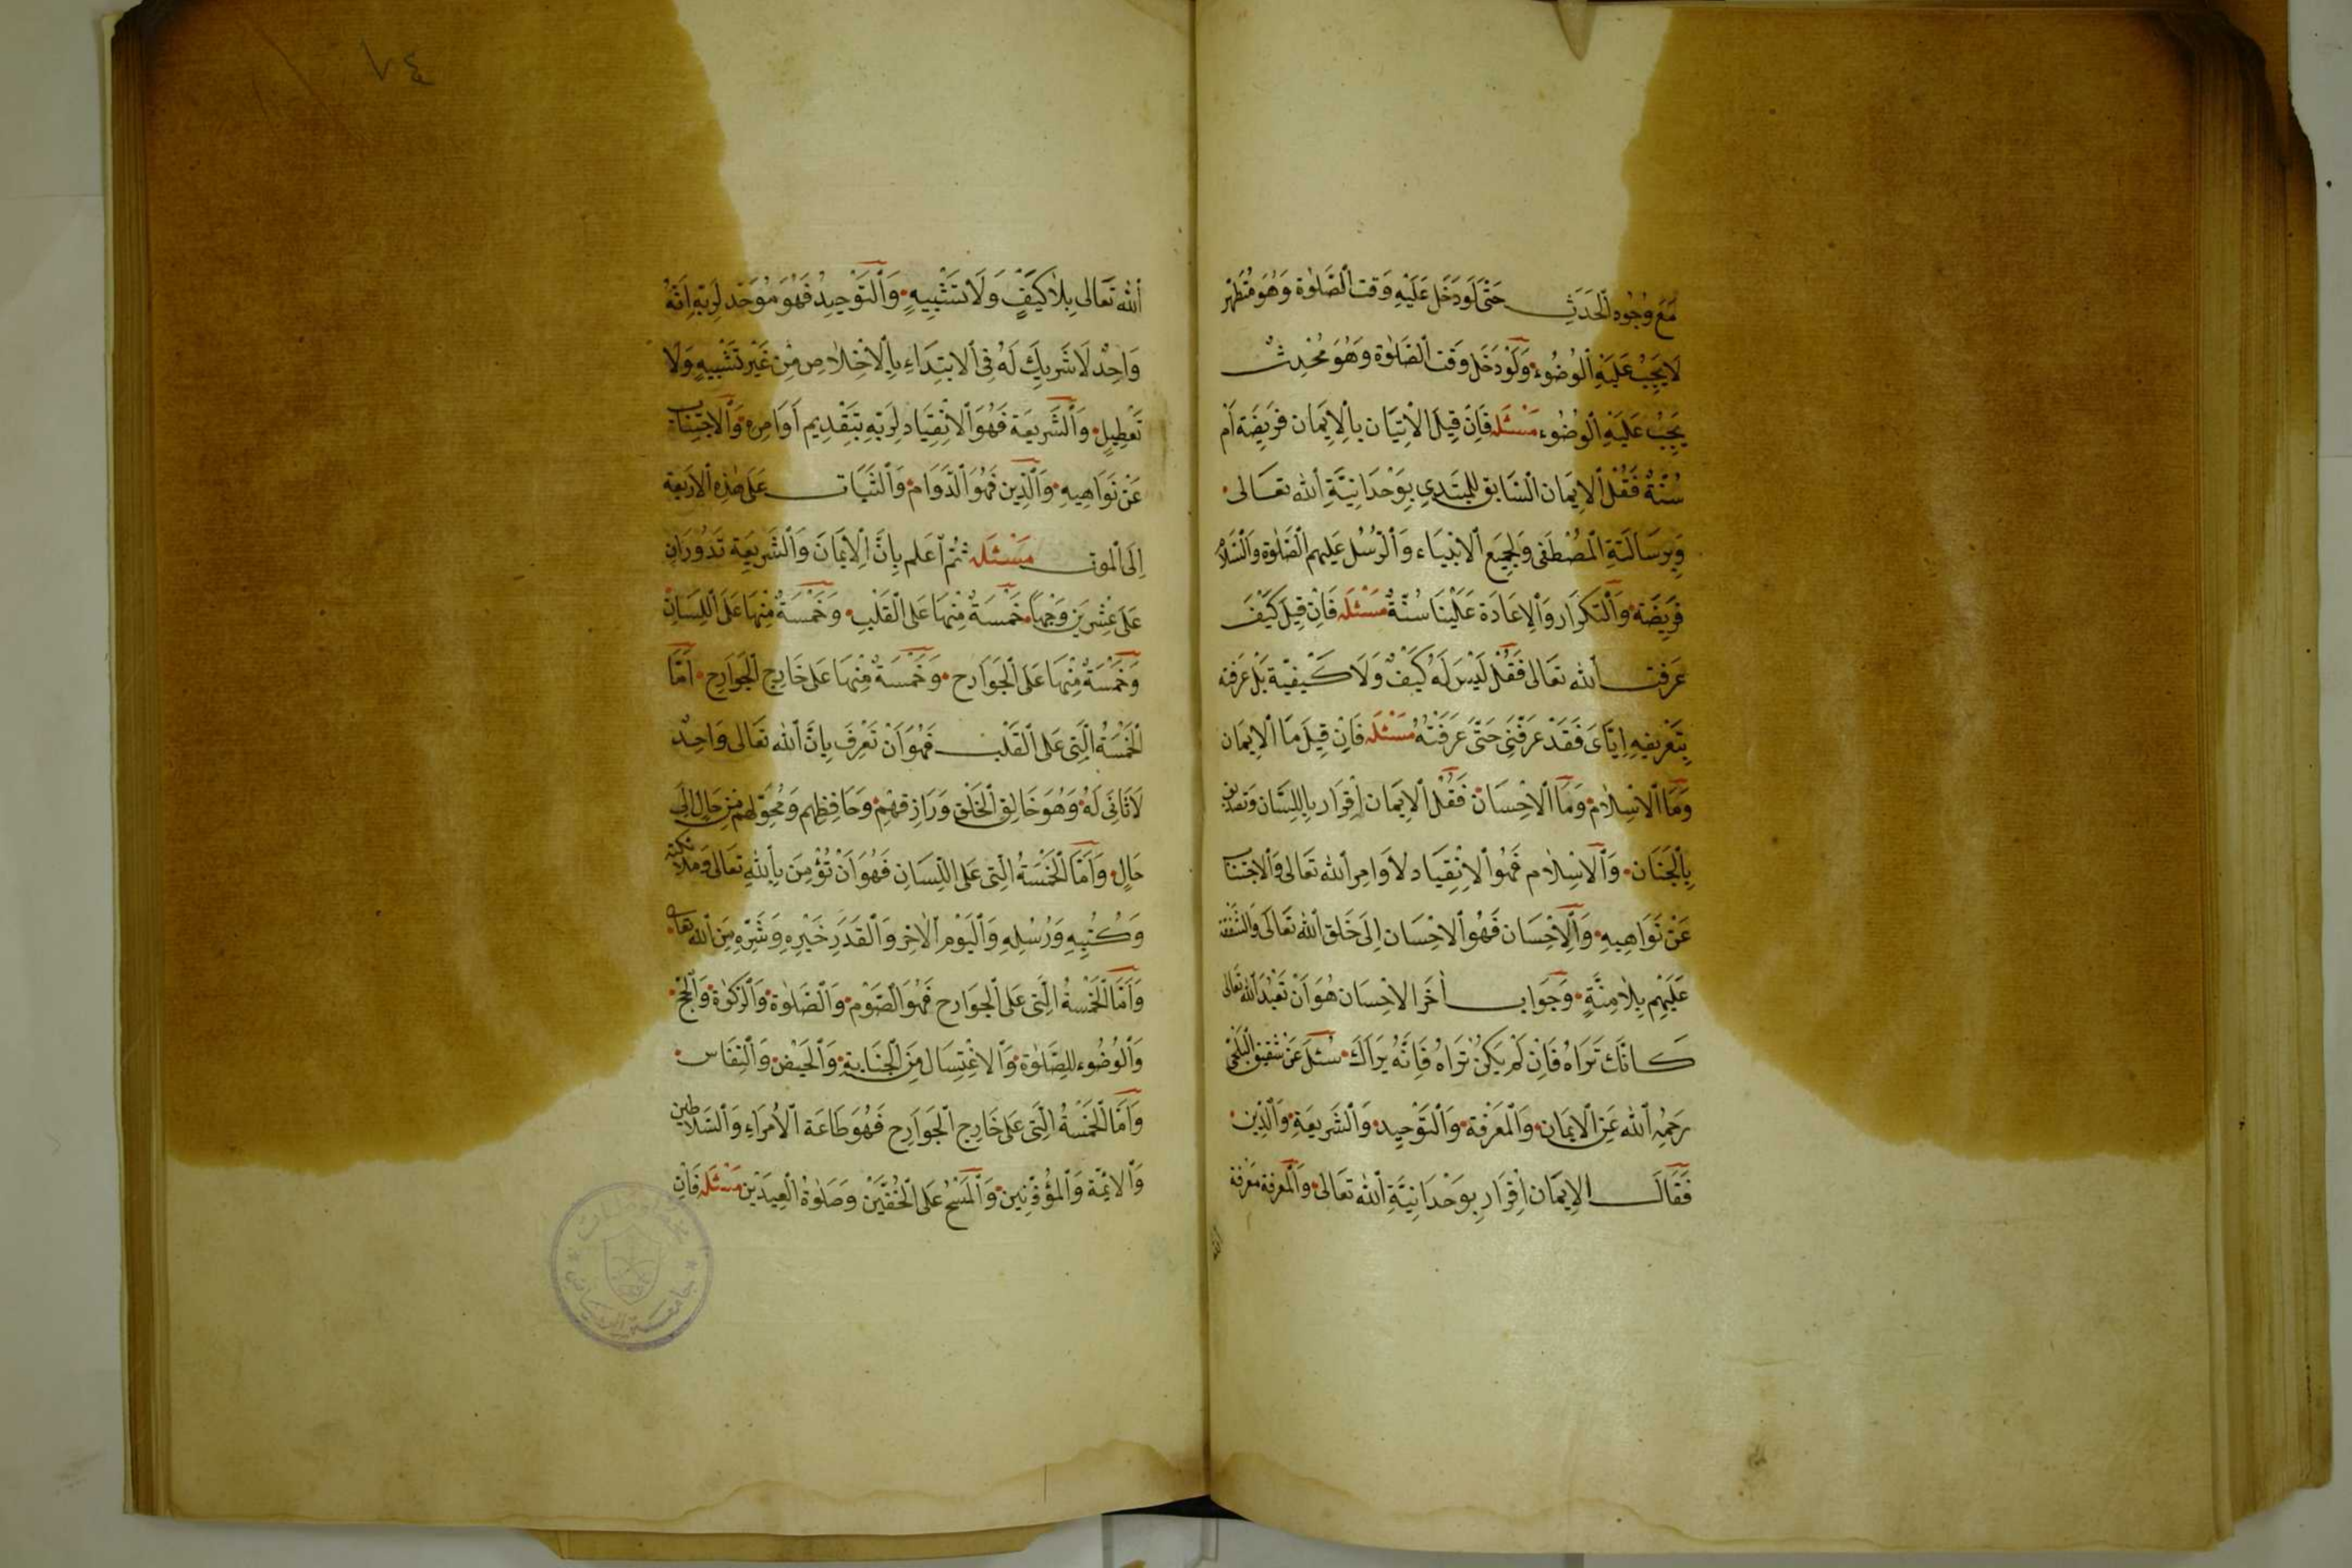 مَعَ وُجُودِ ٱلْحَدَثِ حَتَّى لَوْ دَخَلَ عَلَيْهِ وَقت ٱلصَّلٰوة وَهُوَ مُتَطَهِّر
لَا يَجِبُ عَلَيْهِ ٱلْوُضُوء وَلَوْ دَخَلَ وَقت ٱلصَّلٰوة وَهُوَ مُحْدِثٌ
يَجِبُ عَلَيْهِ ٱلْوُضُوء مَسْئَله فَاِنْ قِيلَ ٱلْاِتيَان بِالْاِيمَان فَرِيضَة اَمْ
سُنَّةٌ فَقُلْ ٱلاِيمَان السَّابق للمبْتَدِي بِوَحْدَانِيَّةِ ٱلله تعَالى
وَبِرِسَالَةِ الْمُصْطَفى وَلِجَمِيعِ ٱلانبِيَاء وَٱلرُّسُل عَلَيهم الصَّلٰوة وَالسَّلام
فَرِيضَة وَالتكرَار وَٱلاِعَادَة عَلَيْنَا سُنَّةٌ مَسْئله فَاِنْ قِيلَ كَيْفَ
عَرَفت ٱلله تعَالى فَقُلْ لَيْسَ لَهُ كَيْفٌ وَلَا كَيْفِيّة بَلْ عَرَفته
بِتَعْرِيفِهِ اِيَّاىَ فَقَدْ عَرَّفَنِى حَتَّى عَرَفْتُهُ مَسْئله فَاِنْ قِيلَ مَا ٱلاِيمَان
وَمَا ٱلاسْلَام وَمَا ٱلاحْسَان فَقُلْ ٱلاِيمَان اِقْرَار بِاللِسَان وَتصديق
بِالْجَنَان وَٱلاسْلَام فَهُوَ ٱلاِنْقِيَاد لاَوَامِر ٱلله تَعَالى وَٱلاجتنَاب
عَنْ نَوَاهِيهِ وَٱلاِحْسَان فَهُوَ ٱلاحْسَان اِلَى خَلق ٱلله تَعَالَى وَالشَّفقة
عَلَيْهِم بِلَا مِنَّةٍ وَجَوَاب اٰخَر الاحْسَان هُوَ اَنْ تَعْبُدَ ٱلله تعَالى
كَانَّكَ تَرَاهُ فَاِنْ لَمْ يَكُنْ تَرَاهُ فَاِنَّهُ يَرَاكَ سُئلَ عَنْ شقيق البَلْخِى
رَحِمَهُ ٱلله عَنِ ٱلاِيمَان وَالْمَعرْفة وَٱلتَوْحِيد وَٱلشَّرِيعَةِ وَٱلدِّين
فَقَالَ الاِيمَان اِقْرَار بِوَحْدَانِيَّةِ ٱلله تعَالى وَالْمَعرفة مَعْرفة
ٱلله
ٱلله تَعَالى بِلَا كَيْفٍ وَلَا تَشْبِيهٍ وَٱلتَوْحِيدُ فَهُوَ مُوَحّد لِرَبّهِ اِنَّهُ
وَاحِدٌ لَا شَرِيكَ لَهُ فِى ٱلابتِدَاءِ بِٱلاخْلَاص مِنْ غَيْر تَشْبِيهٍ وَلَا
تَعْطِيلٍ وَٱلشَّرِيعَة فَهُوَ ٱلانْقِيَاد لِرَبّهِ بِتَقْدِيم اَوَامِرهِ وَٱلاجتِنَاب
عَنْ نَوَاهِيهِ وَٱلدِّين فَهُوَ ٱلدَّوَام وَٱلثَّبَات عَلَى هٰذِهِ ٱلاَرْبعة
اِلَى ٱلْمَوت مَسْئَله ثُمَّ ٱعلم بِاَنَّ ٱلْاِيمَانَ وَٱلشَّرِيعَة تَدُورَانِ
عَلَى عِشْرِينَ وَجْهًا خَمْسَةٌ مِنْهَا عَلَى ٱلْقَلْبِ وَخَمْسَةٌ مِنْهَا عَلَى اللِّسَانِ
وَخَمْسَةٌ مِنْهَا عَلَى ٱلْجَوَارح وَخَمْسَةٌ مِنْهَا عَلَى خَارِج ٱلْجَوَارِح اَمَّا
ٱلْخَمْسَةُ الَّتِى عَلَى ٱلْقَلْب فَهُوَ اَنْ تَعْرِفَ بِاَنَّ ٱلله تَعَالى وَاحِدٌ
لَا ثَانِىَ لَهُ وَهُوَ خَالِق ٱلْخَلْق وَرَازِقهُمْ وَحَافِظهم وَمُحَوِّلهم مِنْ حَالٍ اِلَى
حَالٍ وَاَمَّا ٱلْخَمْسَةُ الَّتِى عَلَى اللِّسَانِ فَهُوَ اَنْ تُؤْمِنَ بِٱللهِ تعَالى وَمَلَائكته
وَكُتُبِهِ وَرُسُلِهِ وَٱلْيَوْم ٱلاٰخِر وَٱلْقَدَر خَيْرِهِ وَشَرِّهِ مِنَ ٱلله تعَالى
وَاَمَّا ٱلْخَمْسَةُ الَّتِى عَلَى ٱلْجوَارح فَهُوَ ٱلصَّوْم وَٱلصَّلٰوة وَٱلزكوٰة وَٱلْحَج
وَٱلوُضُوء لِلصَّلٰوة وَٱلاغْتِسَال مِنَ ٱلْجَنَابةِ وَٱلْحَيْض وَٱلنِفَاس
وَاَمَّا ٱلْخَمْسَةُ الَّتِى عَلَى خَارِج ٱلْجَوَارح فَهُوَ طَاعَة ٱلاُمَرَاء وَٱلسَّلَاطِين
وَٱلائِمّة وَٱلمُؤَذّنِينَ وَٱلْمَسْحُ عَلَى ٱلْخُفَّيْن وَصَلٰوةُ الْعِيدَيْن مَسْئَله فَاِن
٧٤
جامعة الرياض